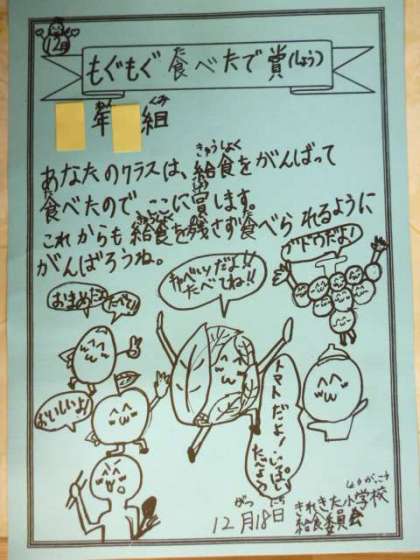 12月
もぐもぐ食べたで賞(しょう)
年 組
あなたのクラスは、給食をがんばって
食べたので、ここに賞します。
これからも給食を残さず食べられるように
がんばろうね。
ブドウだよ!
キャベツだよ!!
たべてね!!
おまめだよ
たべて!
おいしいよ!
トマトだよ!
いっぱい
たべてね
12月18日
きれきた小学校
給食委員会